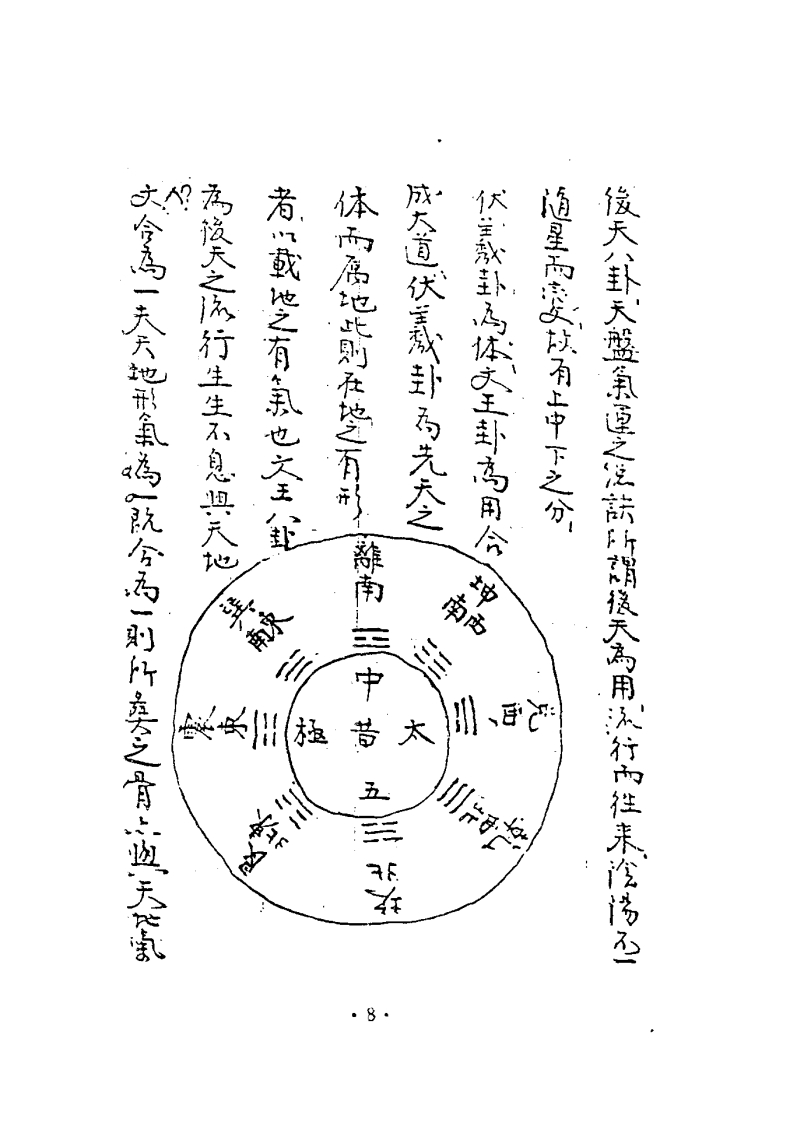 後天八卦天盤氣運之從訣所謂後天為用流行而往來陰陽不一
隨星而變故有上中下之分
伏羲卦為体文王卦為用合
成大道伏羲卦為先天之
体而属地此則在地之有形
者以載地之有氣也文王八卦
為後天之流行生生不息與天地
人?
文合為一夫天地形氣為一既合為一則所奠之骨亦與天地氣
離南
坤西南
兌西
乾西北
坎北
艮東北
震東
巽東南
中
太昔極
五
·8·